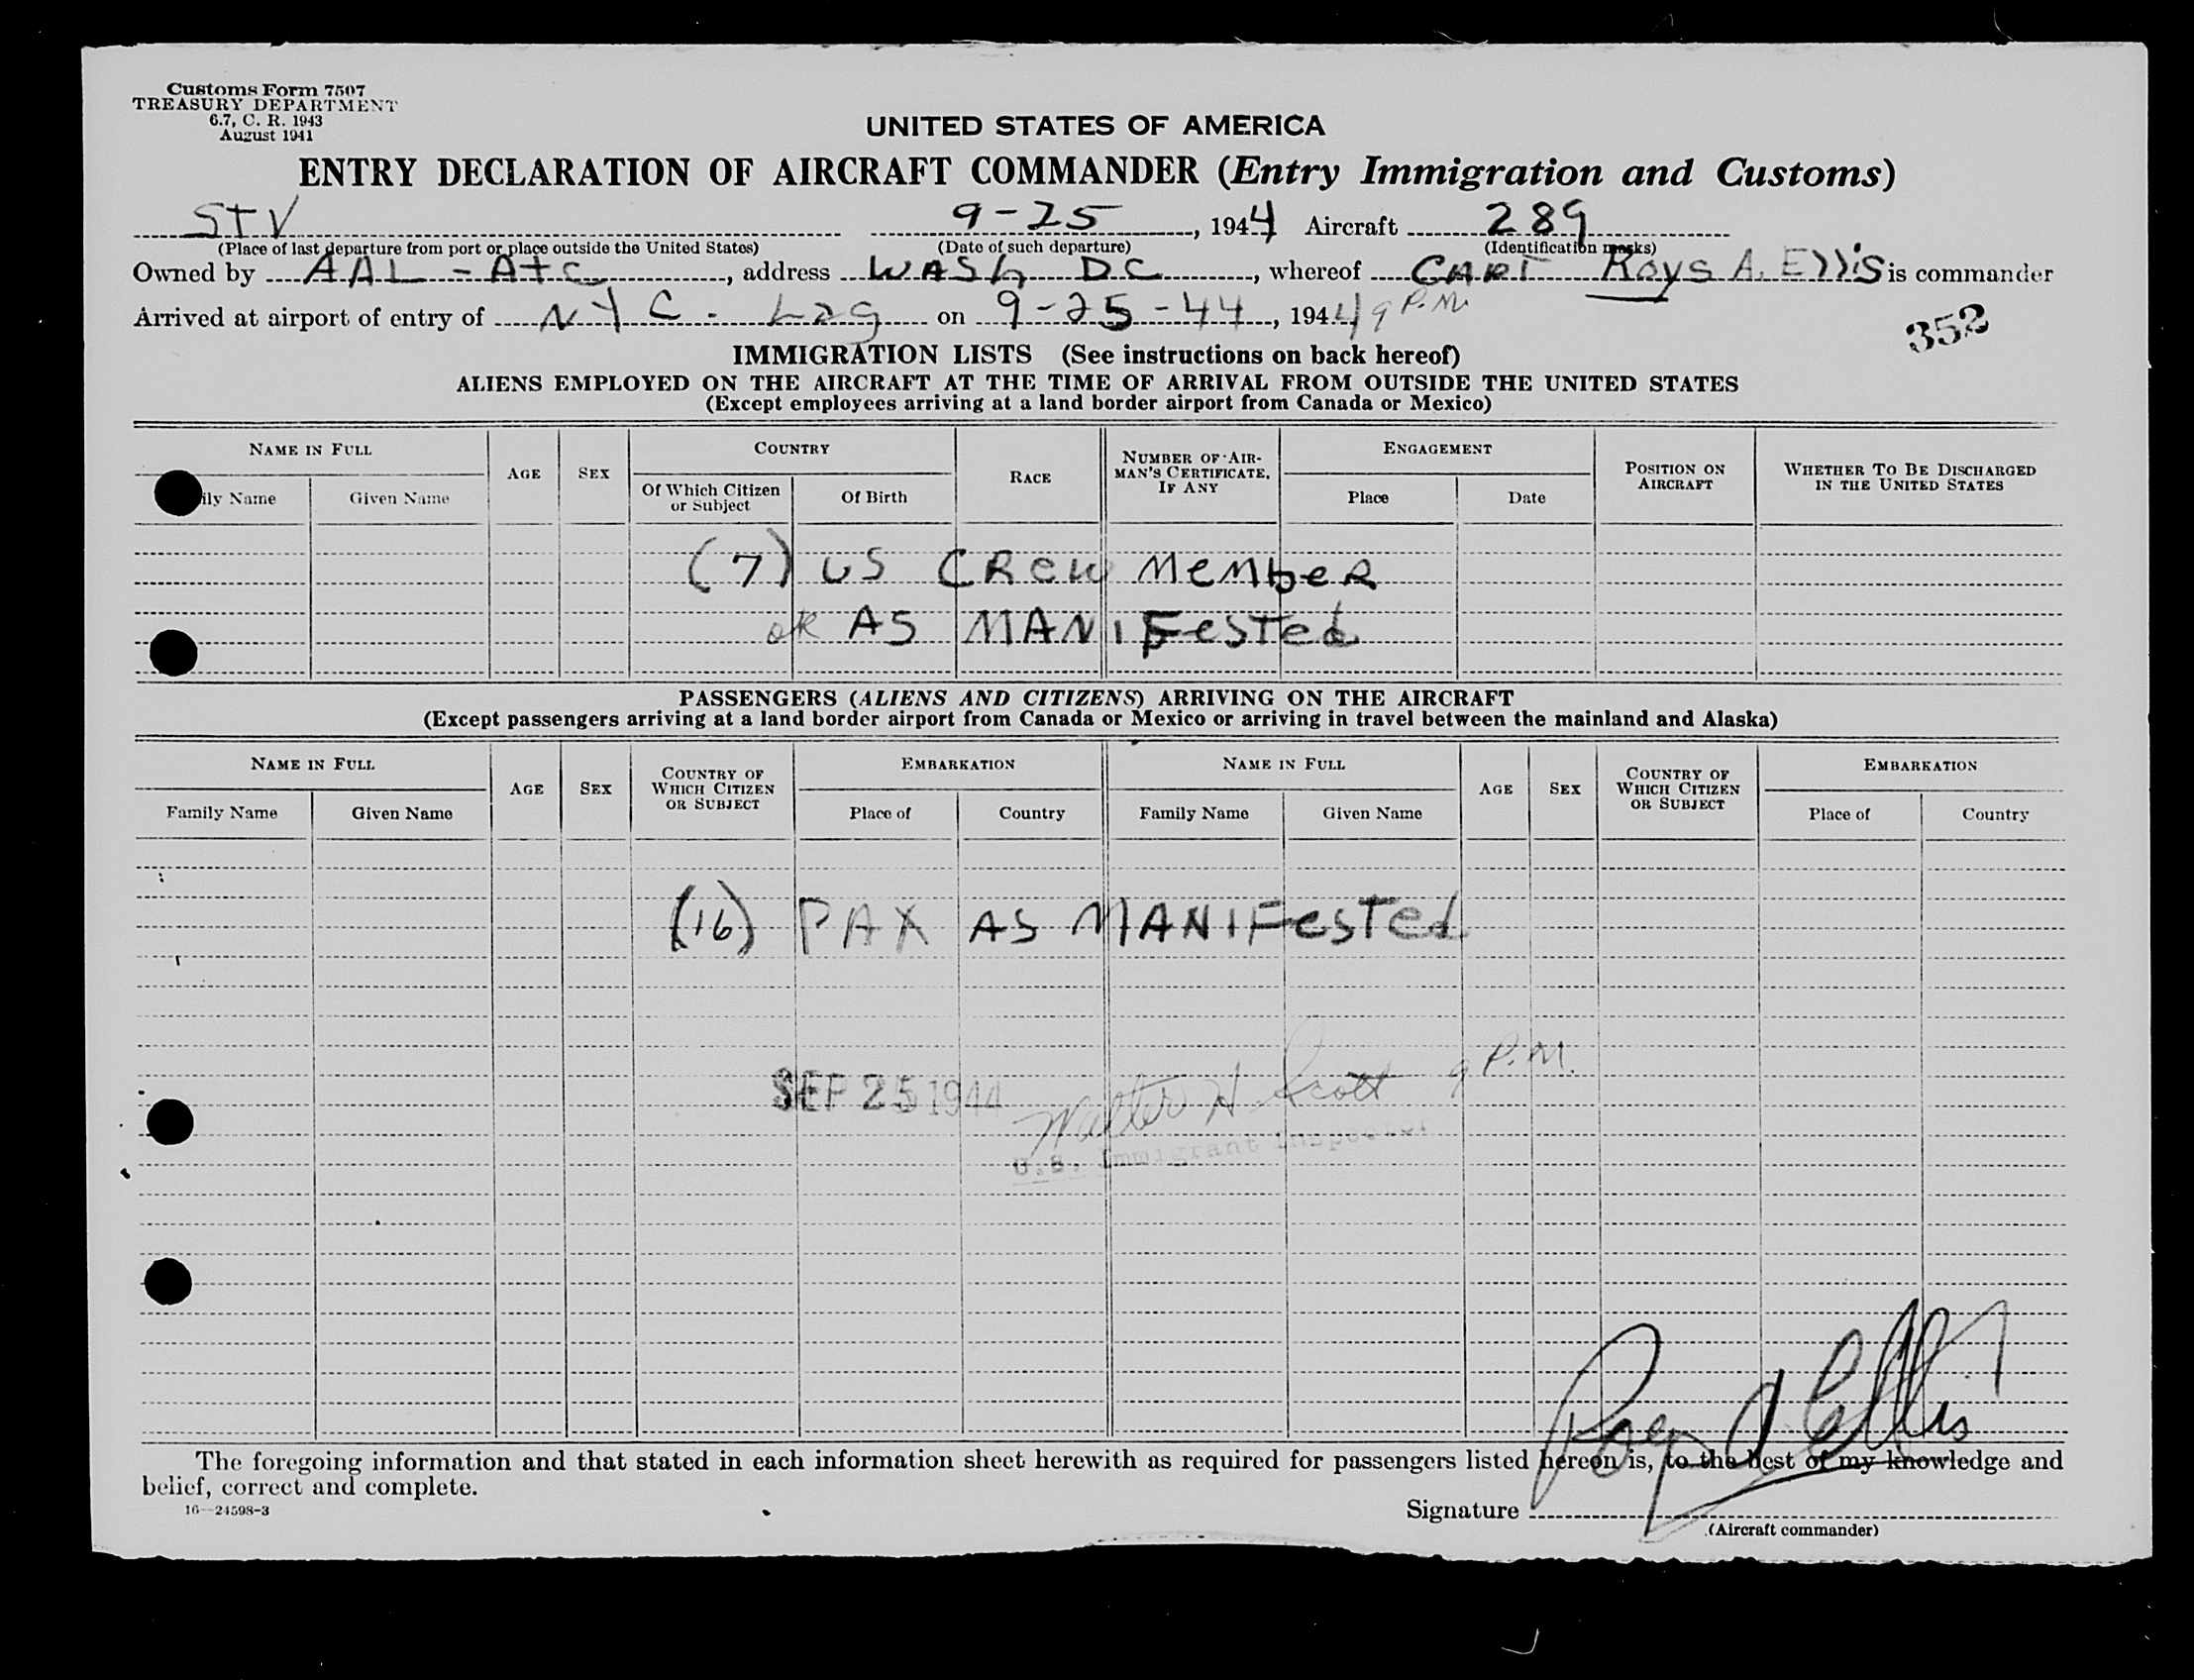 Customs Form 7507
TREASURY DEPARTMENT
6.7, C. R. 1943
August 1941
UNITED STATES OF AMERICA
ENTRY DECLARATION OF AIRCRAFT COMMANDER (Entry Immigration and Customs)
STV 9-25, 1944 Aircraft 289
(Place of last departure from port or place outside the United States) (Date of such departure) (Identification marks)
Owned by AAL - Atc, address WASh DC, whereof CAPT Roys A. Ellis is commander
Arrived at airport of entry of NYC - Lag on 9-25-44, 1944 9 P.M.
352
IMMIGRATION LISTS (See instructions on back hereof)
ALIENS EMPLOYED ON THE AIRCRAFT AT THE TIME OF ARRIVAL FROM OUTSIDE THE UNITED STATES
(Except employees arriving at a land border airport from Canada or Mexico)
NAME IN FULL AGE SEX COUNTRY RACE NUMBER OF AIRMAN'S CERTIFICATE, IF ANY ENGAGEMENT POSITION ON AIRCRAFT WHETHER TO BE DISCHARGED IN THE UNITED STATES
ily Name Given Name Of Which Citizen or Subject Of Birth Place Date
(7) US CReW MeMbeR
ok AS MANIFesTed
PASSENGERS (ALIENS AND CITIZENS) ARRIVING ON THE AIRCRAFT
(Except passengers arriving at a land border airport from Canada or Mexico or arriving in travel between the mainland and Alaska)
NAME IN FULL AGE SEX COUNTRY OF WHICH CITIZEN OR SUBJECT EMBARKATION NAME IN FULL AGE SEX COUNTRY OF WHICH CITIZEN OR SUBJECT EMBARKATION
Family Name Given Name Place of Country Family Name Given Name Place of Country
(16) PAX AS MANIFesTed
SEP 25 1944 Walter H Scott 9 P.M.
U.S. Immigrant Inspector
Roys A Ellis
The foregoing information and that stated in each information sheet herewith as required for passengers listed hereon is, to the best of my knowledge and
belief, correct and complete.
16—24598-3
Signature
(Aircraft commander)